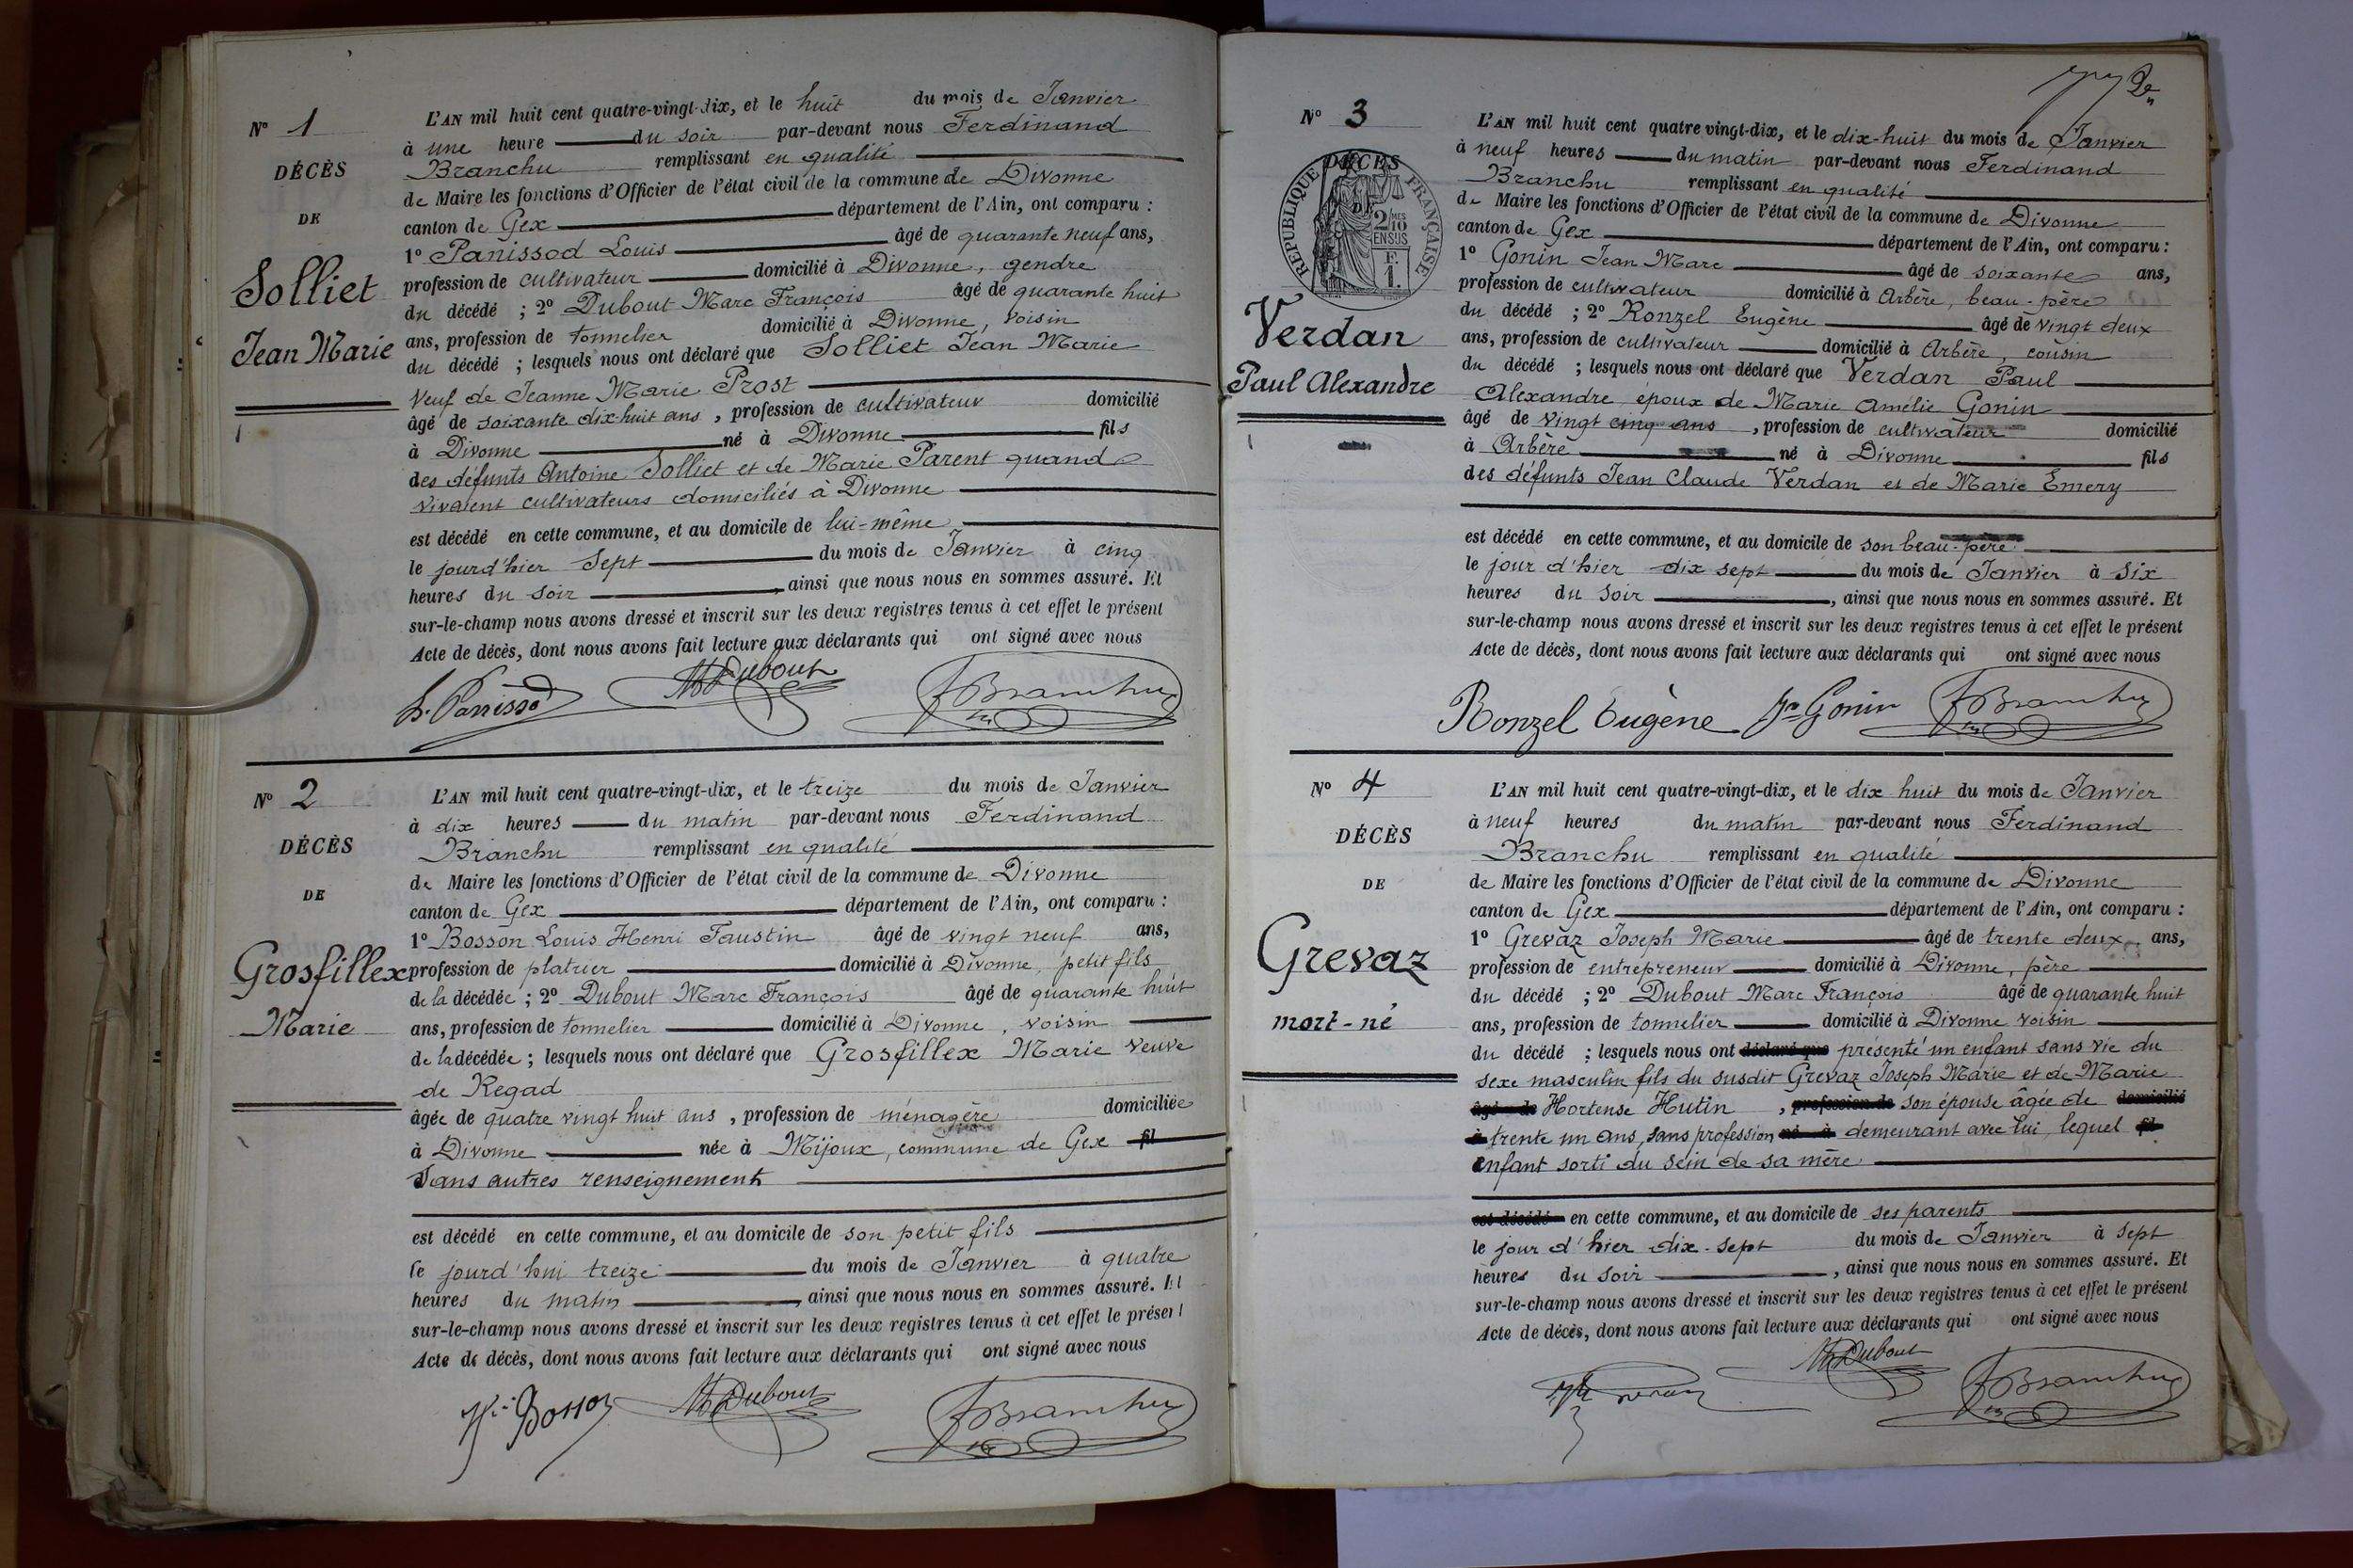 N° 1
DÉCÈS
DE
Solliet
Jean Marie
L'AN mil huit cent quatre-vingt-dix, et le huit du mois de Janvier
à une heure du soir par-devant nous Ferdinand
Branchu remplissant en qualité
de Maire les fonctions d'Officier de l'état civil de la commune de Divonne
canton de Gex département de l'Ain, ont comparu :
1° Panissod Louis âgé de quarante neuf ans,
profession de cultivateur domicilié à Divonne, gendre
du décédé ; 2° Dubout Marc François âgé de quarante huit
ans, profession de tonnelier domicilié à Divonne, voisin
du décédé ; lesquels nous ont déclaré que Solliet Jean Marie
Veuf de Jeanne Marie Prost
âgé de soixante dix-huit ans, profession de cultivateur domicilié
à Divonne né à Divonne fils
des défunts Antoine Solliet et de Marie Parent quand
vivaient cultivateurs domiciliés à Divonne
est décédé en cette commune, et au domicile de lui-même
le jourd'hier Sept du mois de Janvier à cinq
heures du soir, ainsi que nous nous en sommes assuré. Et
sur-le-champ nous avons dressé et inscrit sur les deux registres tenus à cet effet le présent
Acte de décès, dont nous avons fait lecture aux déclarants qui ont signé avec nous
L. Panissod MF Dubout F Branchu
N° 2
DÉCÈS
DE
Grosfillex
Marie
L'AN mil huit cent quatre-vingt-dix, et le treize du mois de Janvier
à dix heures du matin par-devant nous Ferdinand
Branchu remplissant en qualité
de Maire les fonctions d'Officier de l'état civil de la commune de Divonne
canton de Gex département de l'Ain, ont comparu :
1° Bosson Louis Henri Faustin âgé de vingt neuf ans,
profession de platrier domicilié à Divonne, petit fils
de la décédée ; 2° Dubout Marc François âgé de quarante huit
ans, profession de tonnelier domicilié à Divonne, voisin
de la décédée ; lesquels nous ont déclaré que Grosfillex Marie veuve
de Regad
âgée de quatre vingt huit ans, profession de ménagère domiciliée
à Divonne née à Mijoux, commune de Gex fil
Sans autres renseignement
est décédé en cette commune, et au domicile de son petit fils
le jourd'hui treize du mois de Janvier à quatre
heures du matin, ainsi que nous nous en sommes assuré. Et
sur-le-champ nous avons dressé et inscrit sur les deux registres tenus à cet effet le présent
Acte de décès, dont nous avons fait lecture aux déclarants qui ont signé avec nous
Hi Bosson MF Dubout F Branchu
N° 3
DÉCÈS
DE
RÉPUBLIQUE FRANÇAISE
2/10
MES
EN SUS
F.
1.
Verdan
Paul Alexandre
L'AN mil huit cent quatre vingt-dix, et le dix-huit du mois de Janvier
à neuf heures du matin par-devant nous Ferdinand
Branchu remplissant en qualité
de Maire les fonctions d'Officier de l'état civil de la commune de Divonne
canton de Gex département de l'Ain, ont comparu :
1° Gonin Jean Marc âgé de soixante ans,
profession de cultivateur domicilié à Arbère, beau-père
du décédé ; 2° Ronzel Eugène âgé de vingt deux
ans, profession de cultivateur domicilié à Arbère, cousin
du décédé ; lesquels nous ont déclaré que Verdan Paul
Alexandre, époux de Marie Amélie Gonin
âgé de vingt cinq ans, profession de cultivateur domicilié
à Arbère né à Divonne fils
des défunts Jean Claude Verdan et de Marie Emery
est décédé en cette commune, et au domicile de son beau-père
le jour d'hier dix sept du mois de Janvier à six
heures du soir, ainsi que nous nous en sommes assuré. Et
sur-le-champ nous avons dressé et inscrit sur les deux registres tenus à cet effet le présent
Acte de décès, dont nous avons fait lecture aux déclarants qui ont signé avec nous
Ronzel Eugène Jn Gonin F Branchu
N° 4
DÉCÈS
DE
Grevaz
mort-né
L'AN mil huit cent quatre-vingt-dix, et le dix huit du mois de Janvier
à neuf heures du matin par-devant nous Ferdinand
Branchu remplissant en qualité
de Maire les fonctions d'Officier de l'état civil de la commune de Divonne
canton de Gex département de l'Ain, ont comparu :
1° Grevaz Joseph Marie âgé de trente deux ans,
profession de entrepreneur domicilié à Divonne, père
du décédé ; 2° Dubout Marc François âgé de quarante huit
ans, profession de tonnelier domicilié à Divonne voisin
du décédé ; lesquels nous ont déclaré que présenté un enfant sans vie du
sexe masculin fils du susdit Grevaz Joseph Marie et de Marie
âgé de Hortense Hutin, profession de son épouse âgée de domicilié
à trente un ans, sans profession né à demeurant avec lui, lequel fil
enfant sorti du sein de sa mère
est décédé en cette commune, et au domicile de ses parents
le jour d'hier dix-sept du mois de Janvier à sept
heures du soir, ainsi que nous nous en sommes assuré. Et
sur-le-champ nous avons dressé et inscrit sur les deux registres tenus à cet effet le présent
Acte de décès, dont nous avons fait lecture aux déclarants qui ont signé avec nous
MF Dubout F Branchu